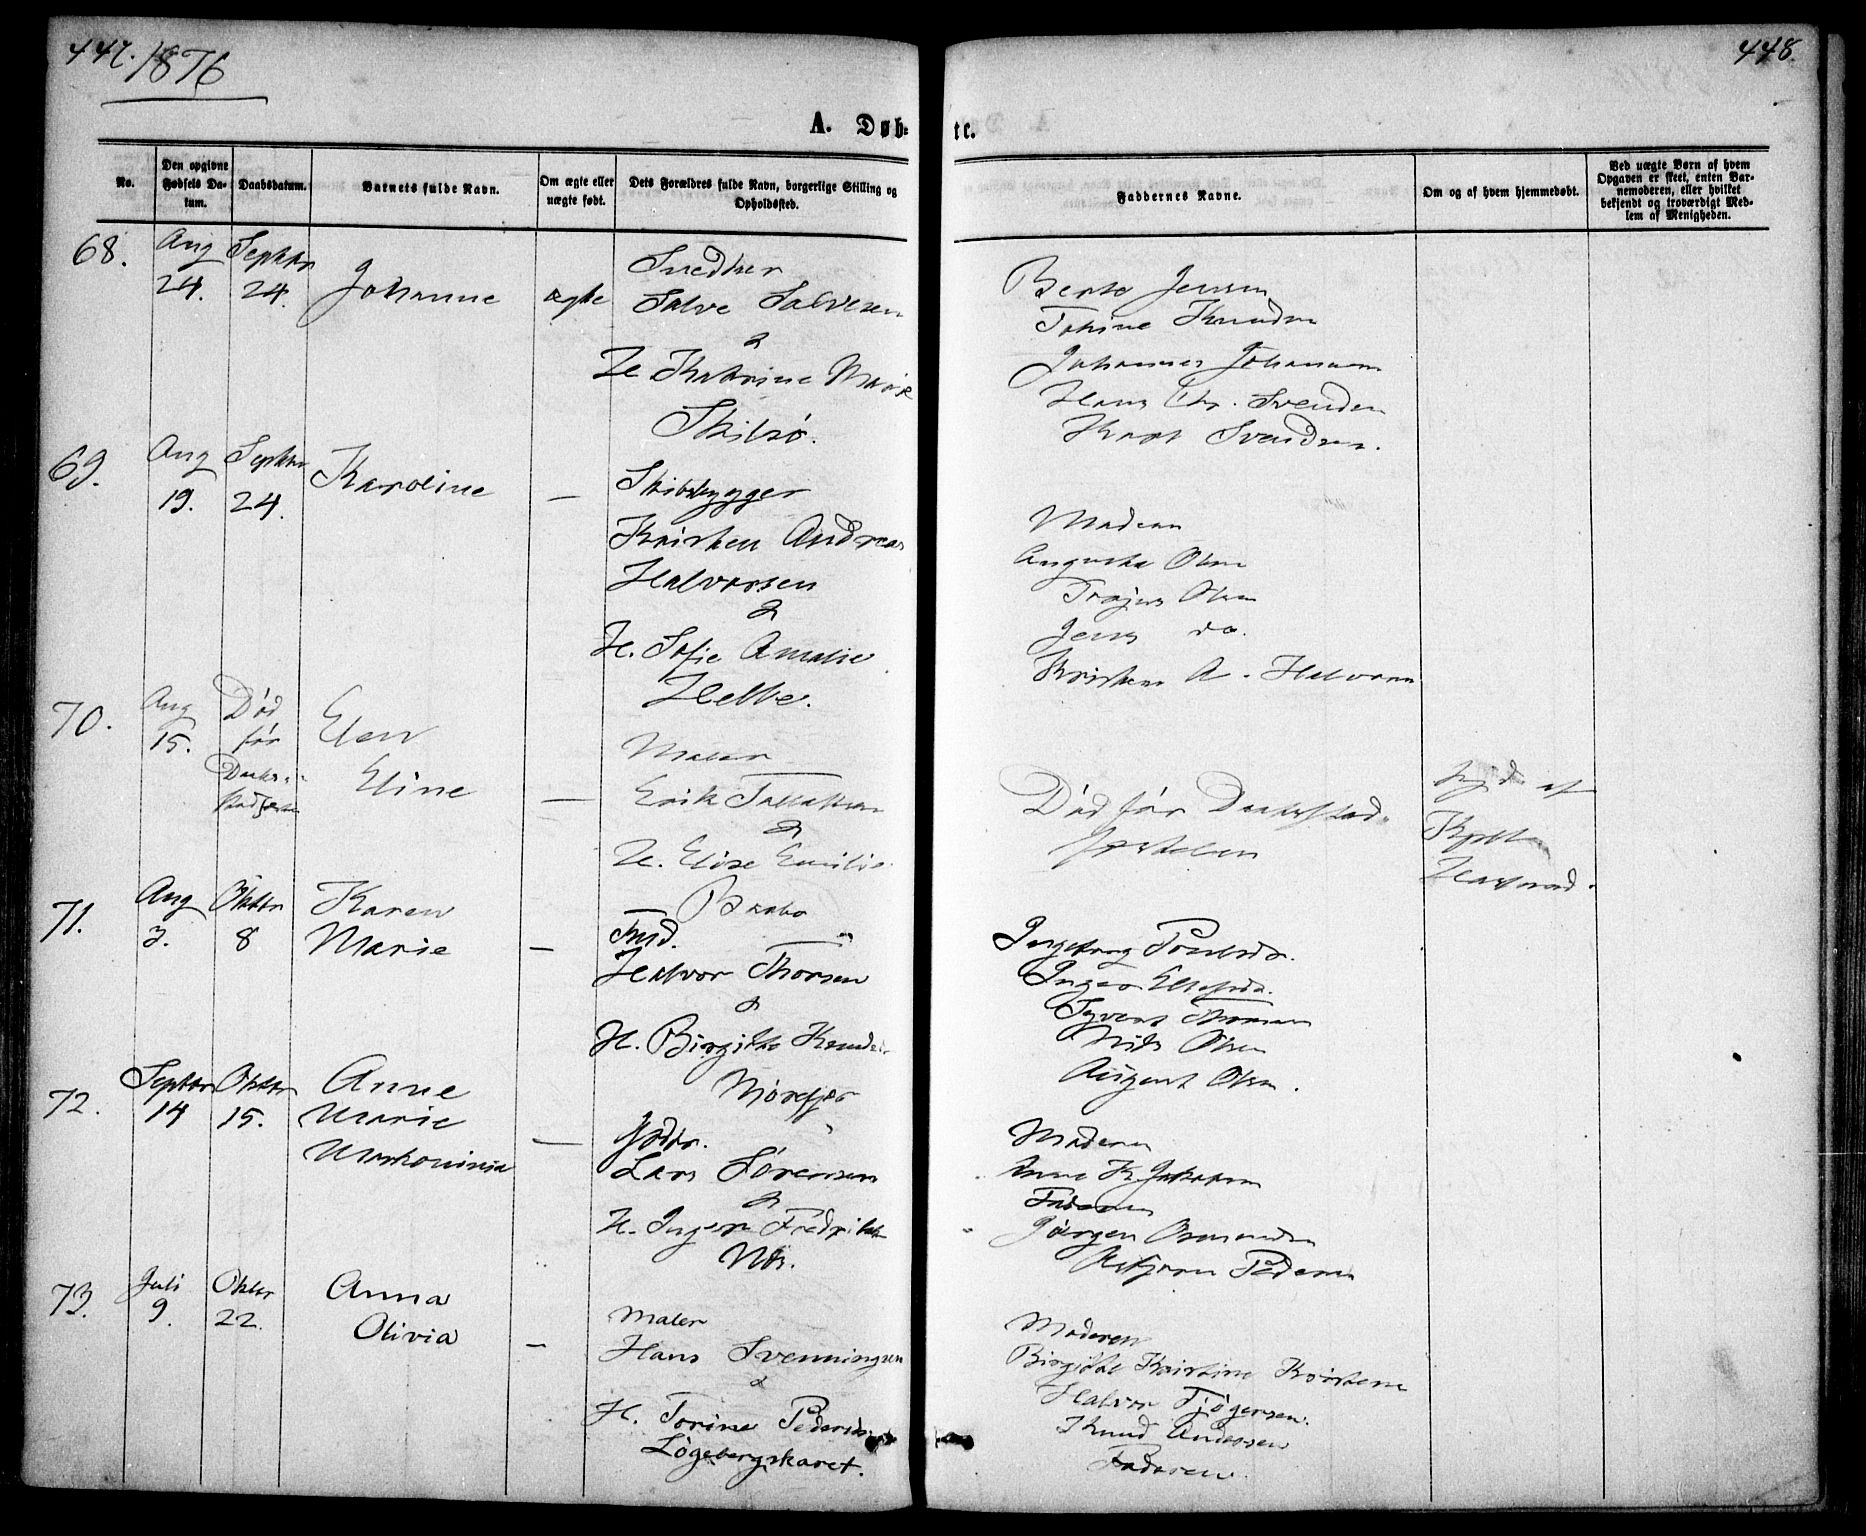 447. 1876
448.
A. Døb- te.
No.
Den opgivne Fødsels Da- tum.
Daabsdatum.
Barnets fulde Navn.
Om ægte eller uægte født.
Dets Forældres fulde Navn, borgerlige Stilling og Opholdssted.
Faddernes Navne.
Om og af hvem hjemmedøbt.
Ved uægte Børn af hvem Opgaven er skeet, enten Bar- nemoderen, eller hvilket bekjendt og troværdigt Med- lem af Menigheden.
68. Aug 24. Septbr 24. Johanne ægte
Snedker
Salve Salvesen
&
H. Katrine Marie
Skilsø.
Berte Jensen
Tomine Knudsen
Johannes Johansen
Hans Chr. Svendsen
Knut Svendsen.
69. Aug 19. Septbr 24. Karoline —
Skibsbygger
Kristen Andreas
Halvorsen
&
H. Sofie Amalie
Helle.
Moderen
Augusta Olsen
Jens do.
Kristen A. Halvorsen
70. Aug 15. Død før Daabs-
Elen
Eline —
Maler
Erik
&
H. Elise Emilie
Død før Daabsstad-
fæstelsen
af
71. Aug 3. Oktbr 8 Karen
Marie —
Husmd.
Halvor Thorsen
&
H. Birgitte Knudsd.
Nørefjær
Ingeborg
Inger
Syvert Thorsen
Nils Olsen
August Olsen.
72. Septbr 14 Oktbr 15. Anne
Marie
—
Lars Sørensen
&
H. Inger Fredrikke
Næs.
Moderen
Anne K. Jakobsen
Faderen
Jørgen Osmundsen
Asbjørn Pedersen
73. Juli 9. Oktbr 22. Anna
Olivia —
Maler
Hans Svenningsen
&
H. Torine Pedersd.
Løgebergskaret.
Moderen
Birgitte Kristine Kristensen
Halvor Tjøgersen.
Knud Andersen
Faderen.